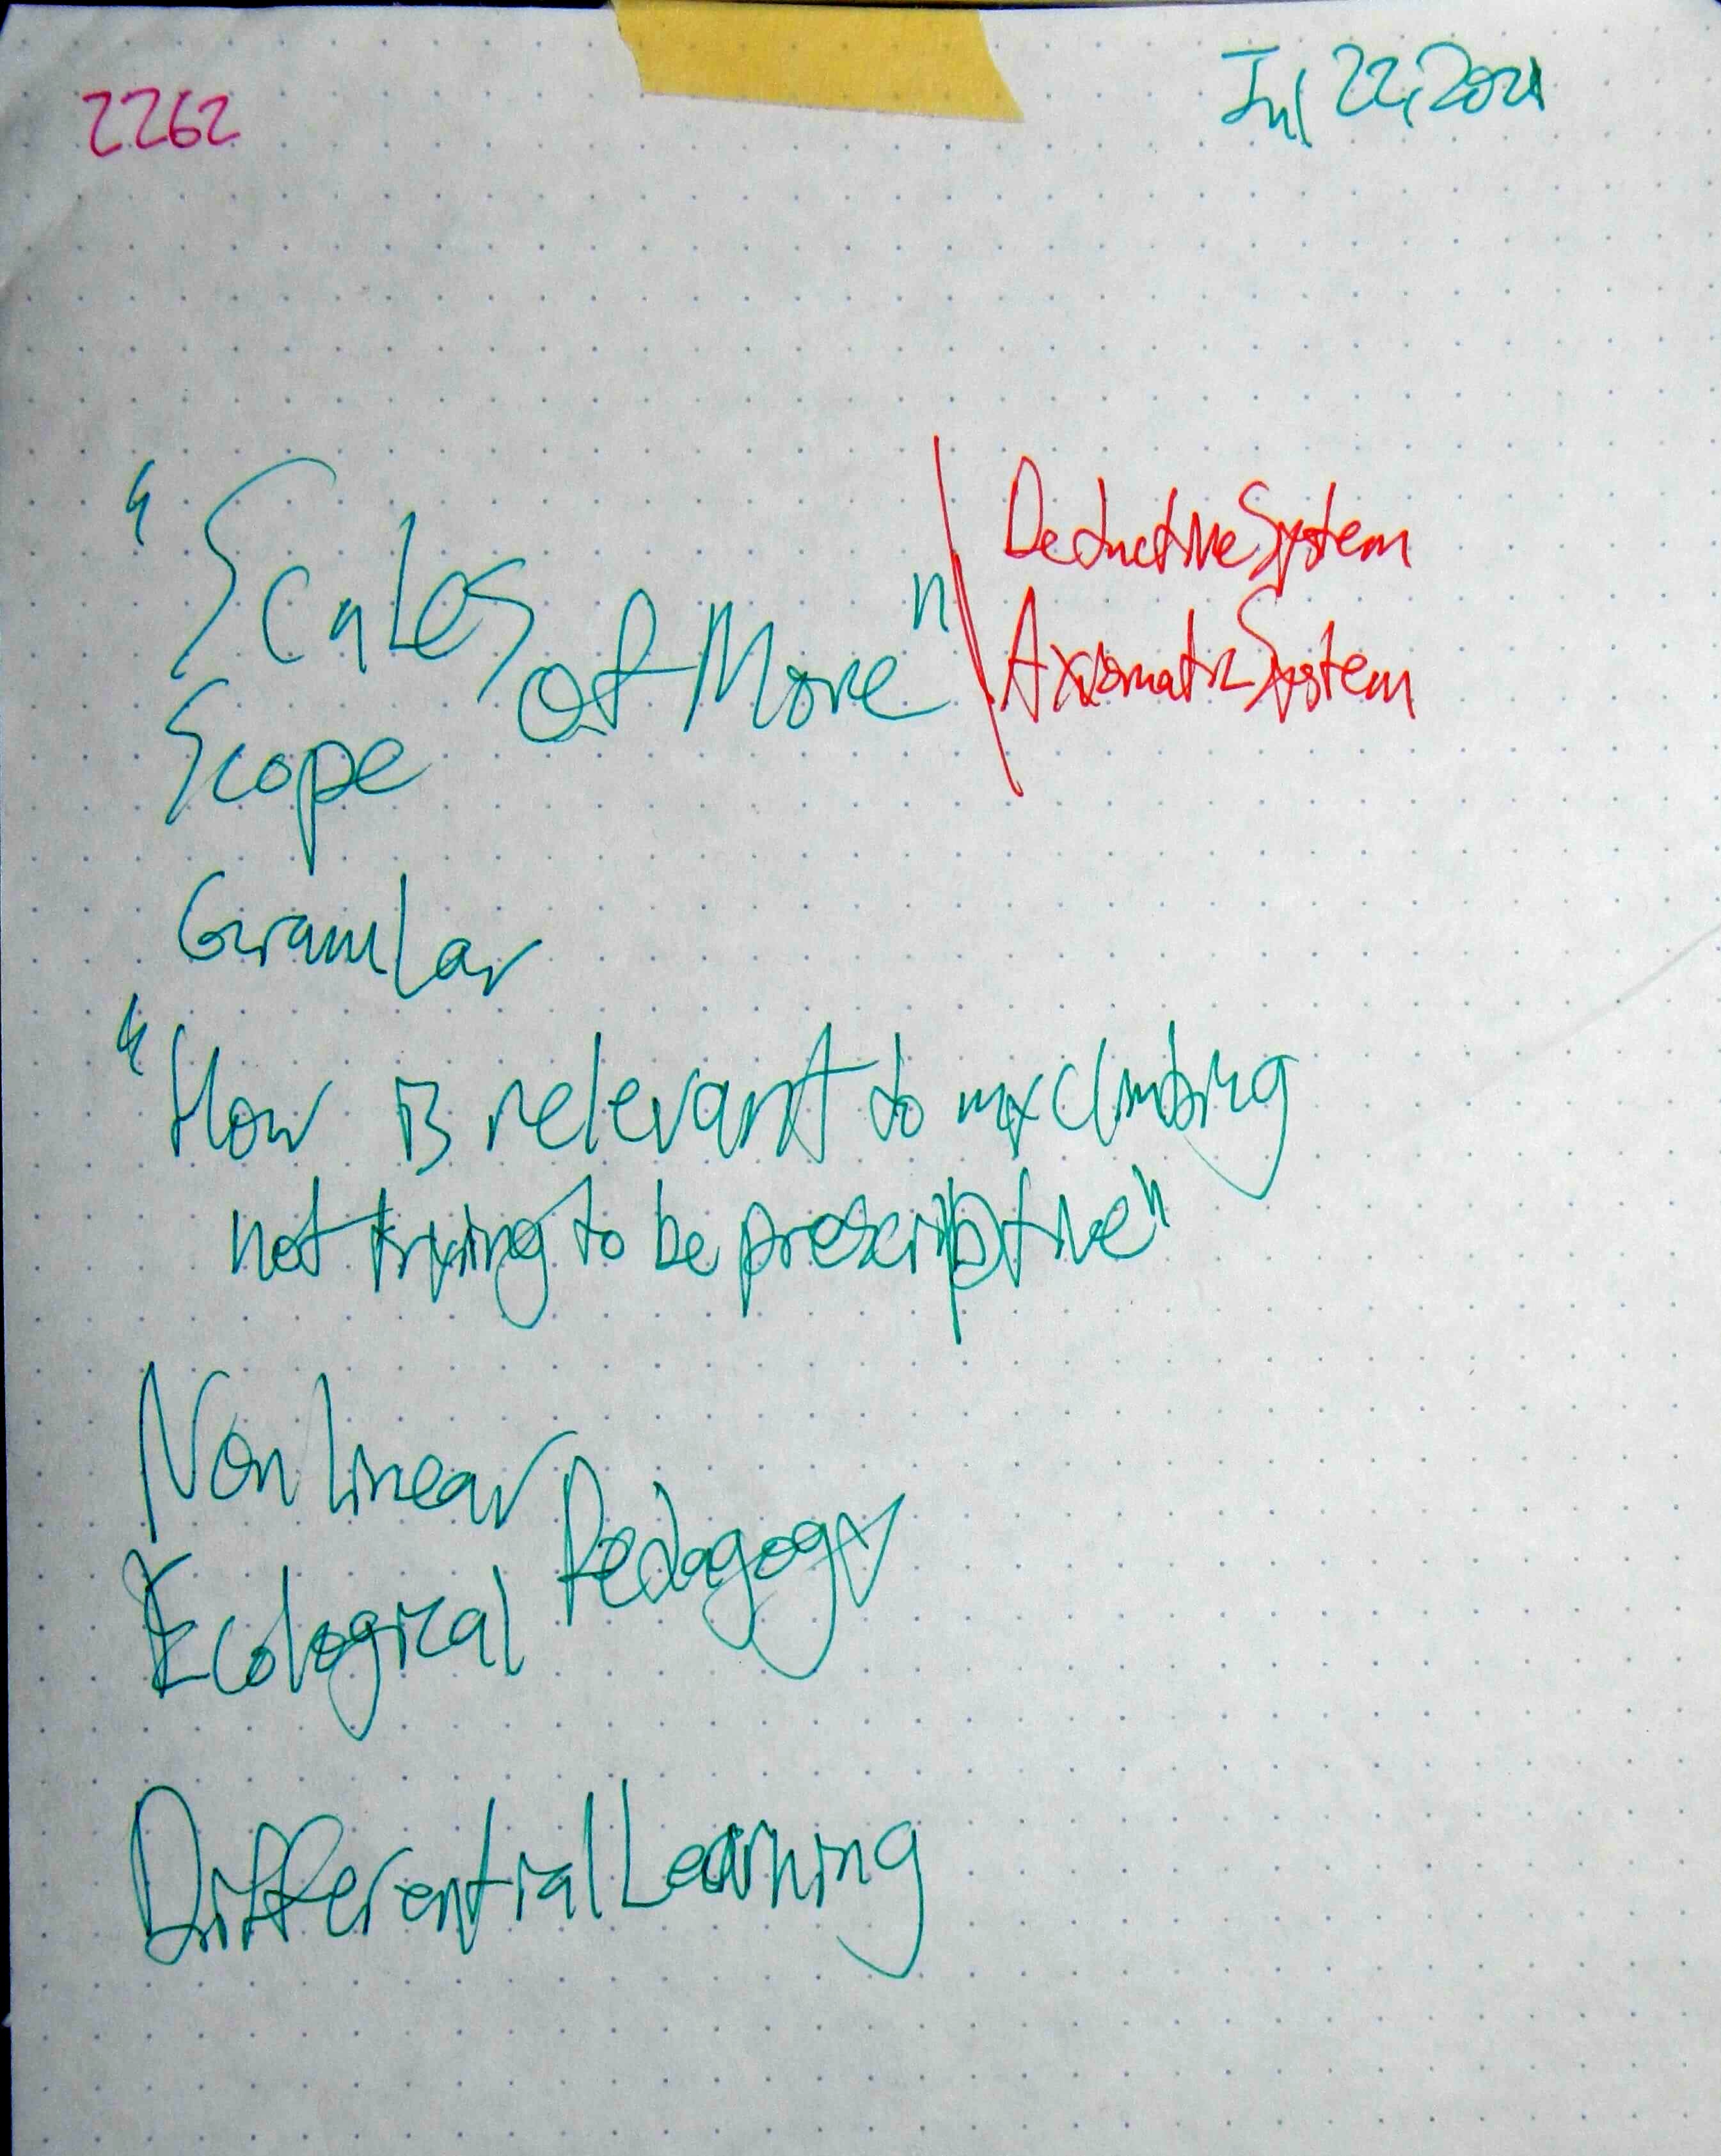 2262
Jul 22, 2021
"Scales of More"
Deductive System
Axiomatic System
Scope
Granular
"How is relevant to my climbing
not trying to be prescriptive"
Nonlinear Pedagogy
Ecological
Differential Learning